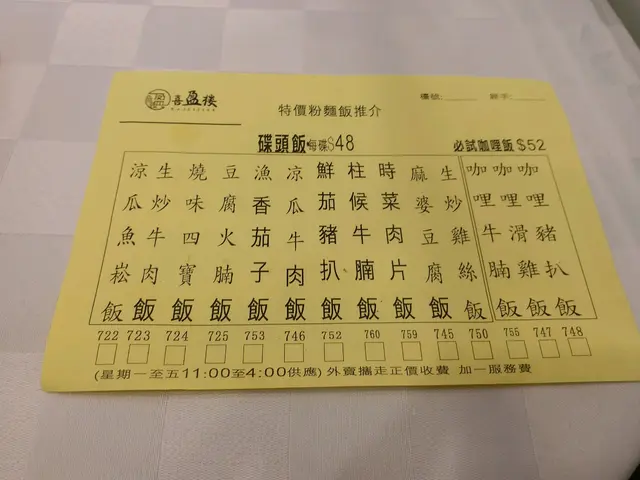 喜盈樓
檯號:
特價粉麵飯推介
碟頭飯每碟$48
必試咖哩飯 $52
涼瓜魚崧飯
生炒牛肉飯
燒味四寶飯
豆腐火腩飯
漁香茄子飯
凉瓜牛肉飯
鮮茄豬扒飯
柱候牛腩飯
時菜肉片飯
麻婆豆腐飯
生炒雞絲飯
咖哩牛腩飯
咖哩滑雞飯
咖哩豬扒飯
722 723 724 725 753 746 752 760 759 745 750 755 747 748
(星期一至五11:00至4:00供應) 外賣攜走正價收費 加一服務費